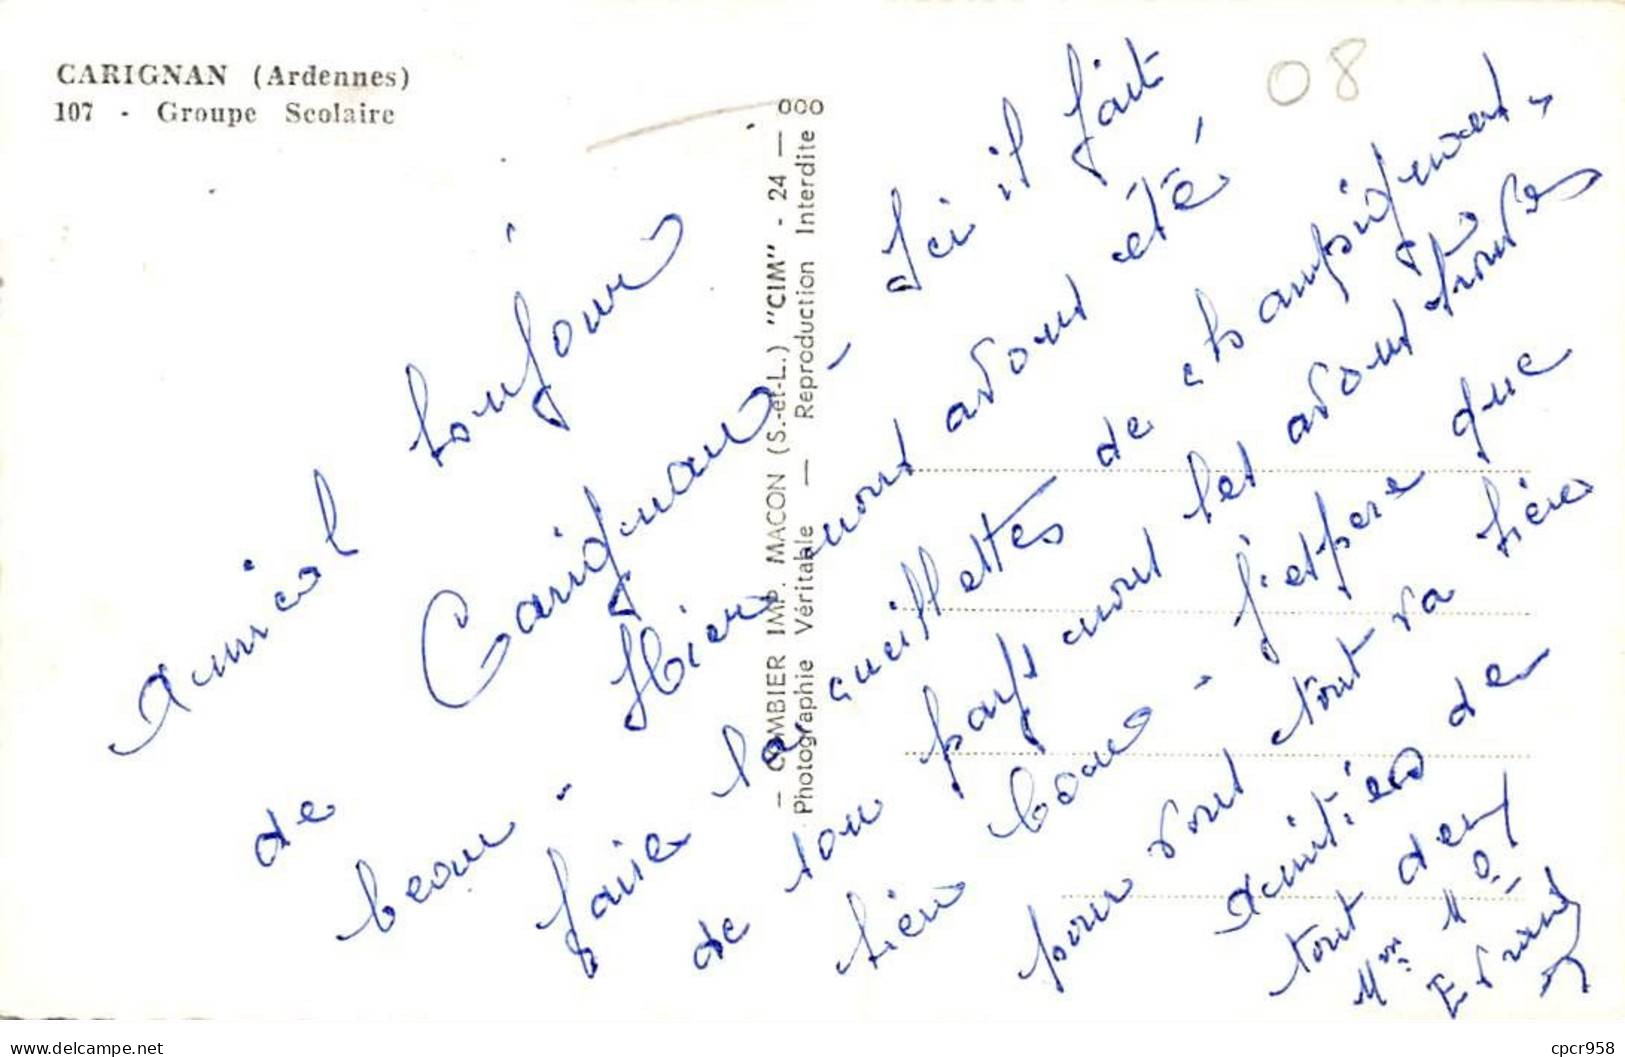 CARIGNAN (Ardennes)
107 - Groupe Scolaire
08
000
— COMBIER IMP. MACON (S.-et-L.) "CIM" - 24 —
Photographie Véritable — Reproduction Interdite
Amical bonjour
de Carignan - Ici il fait
beau - Hier nous avons été
faire la cueillettes de champignons,
de son pays nous les avons trouvés
bien beau - j'espère que
pour vous tout va bien
Amitiés de
tous deux
Mme M
cpcr958
www.delcampe.net